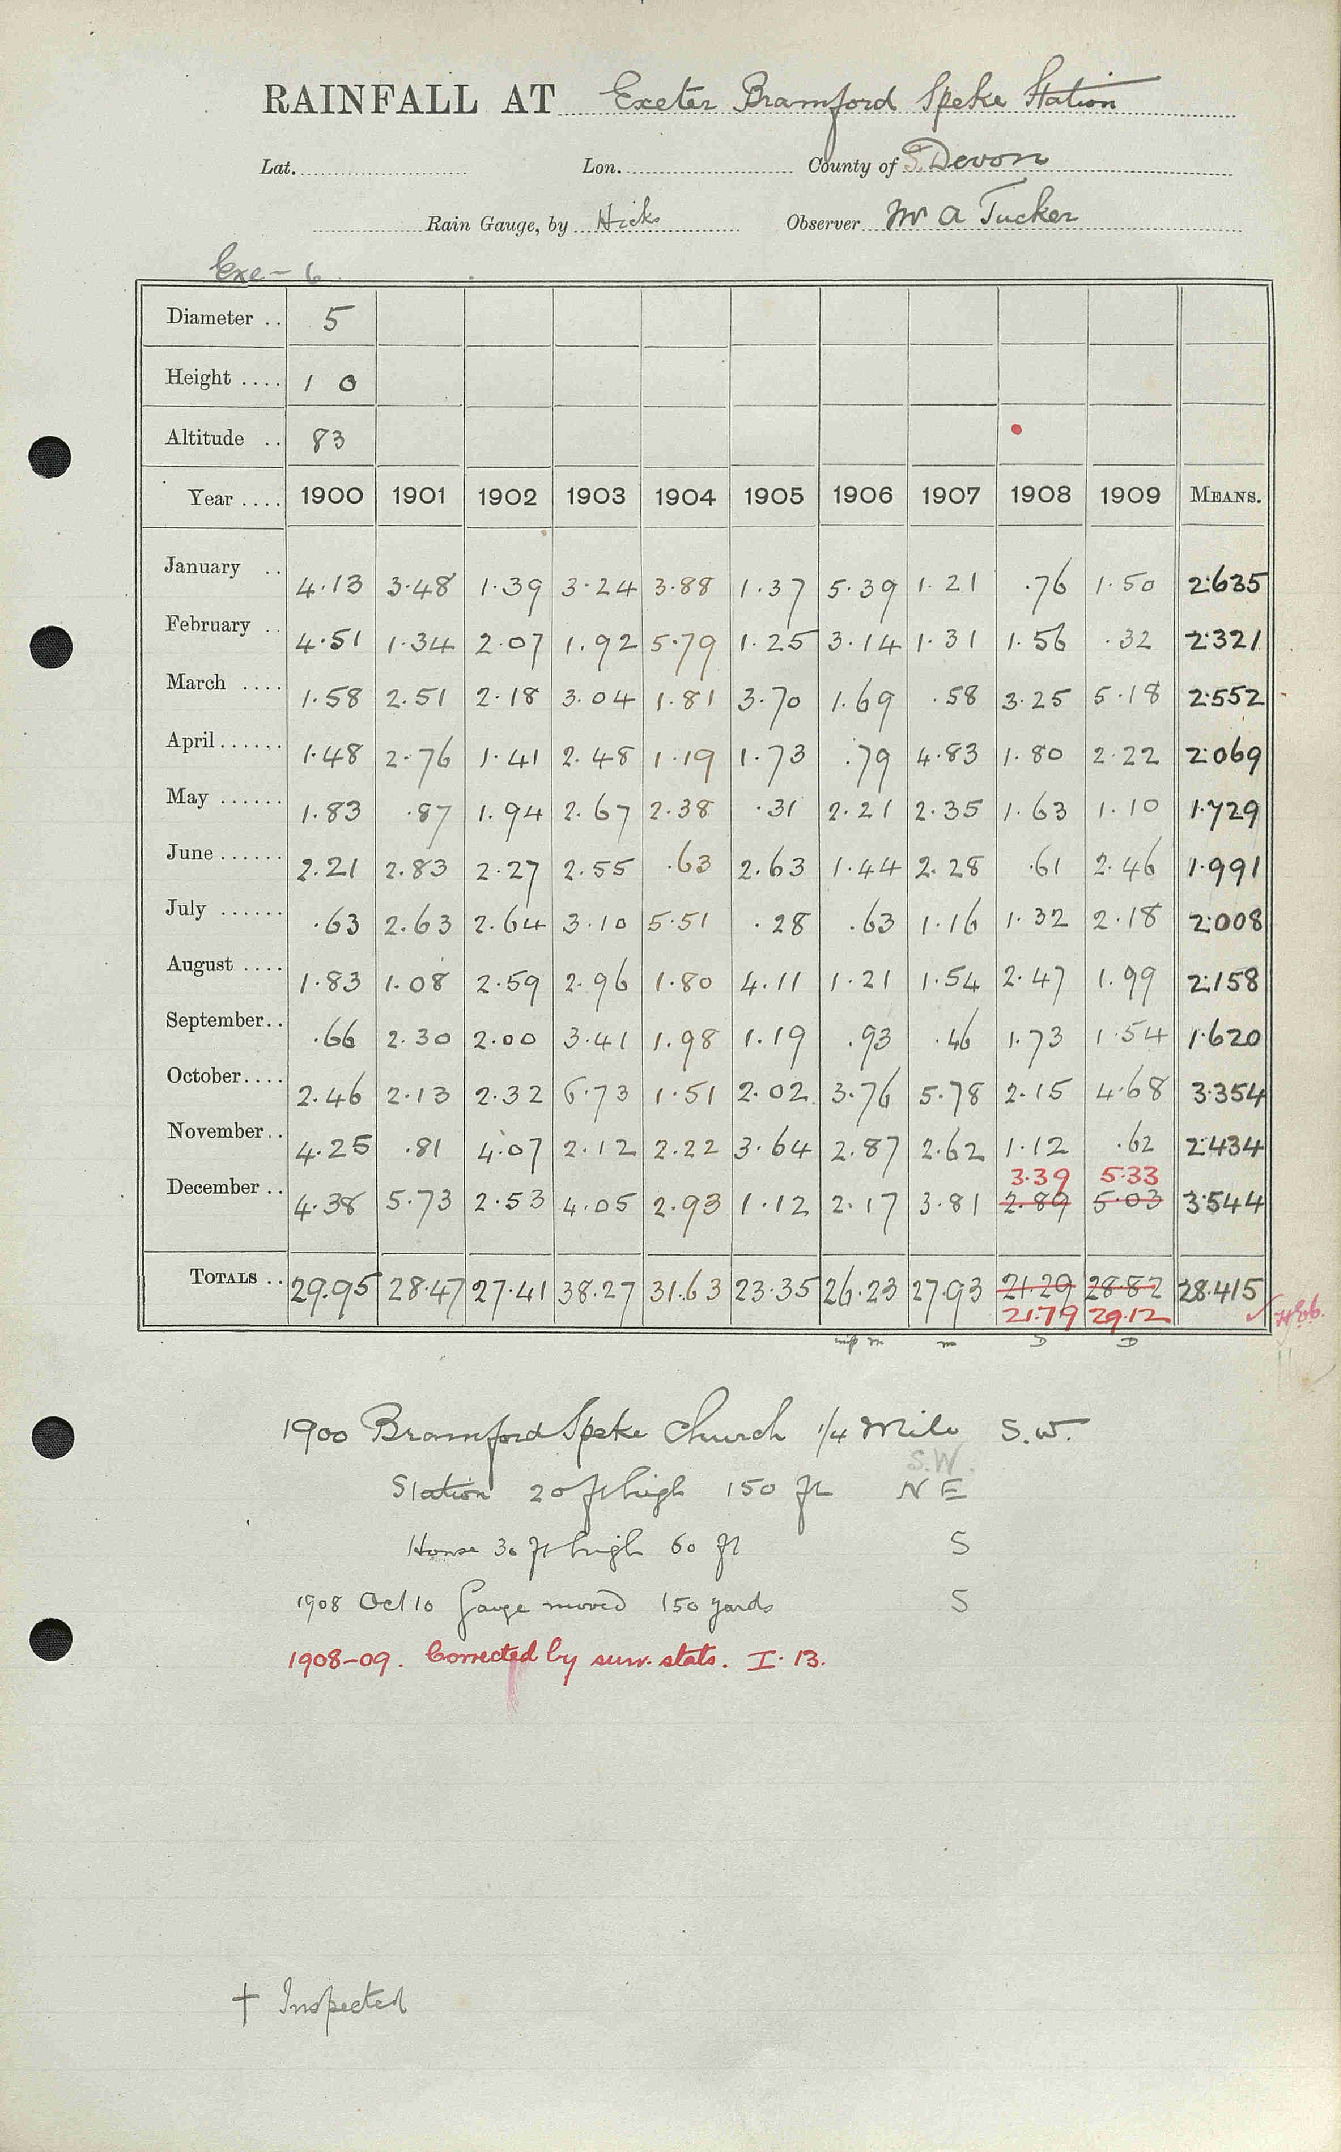 RAINFALL AT Exeter Bramford Speke Station
Lat. Lon. County of S. Devon
Rain Gauge, by Hicks Observer Mr A Tucker
Exe - 6
Diameter .. 5
Height .... 1 0
Altitude .. 83
Year .... 1900 1901 1902 1903 1904 1905 1906 1907 1908 1909 MEANS.
January .. 4.13 3.48 1.39 3.24 3.88 1.37 5.39 1.21 .76 1.50 2.635
February .. 4.51 1.34 2.07 1.92 5.79 1.25 3.14 1.31 1.56 .32 2.321
March .... 1.58 2.51 2.18 3.04 1.81 3.70 1.69 .58 3.25 5.18 2.552
April ...... 1.48 2.76 1.41 2.48 1.19 1.73 .79 4.83 1.80 2.22 2.069
May ...... 1.83 .87 1.94 2.67 2.38 .31 2.21 2.35 1.63 1.10 1.729
June ...... 2.21 2.83 2.27 2.55 .63 2.63 1.44 2.28 .61 2.46 1.991
July ...... .63 2.63 2.64 3.10 5.51 .28 .63 1.16 1.32 2.18 2.008
August .... 1.83 1.08 2.59 2.96 1.80 4.11 1.21 1.54 2.47 1.99 2.158
September.. .66 2.30 2.00 3.41 1.98 1.19 .93 .46 1.73 1.54 1.620
October.... 2.46 2.13 2.32 6.73 1.51 2.02 3.76 5.78 2.15 4.68 3.354
November.. 4.25 .81 4.07 2.12 2.22 3.64 2.87 2.62 1.12 .62 2.434
3.39 5.33
December .. 4.38 5.73 2.53 4.05 2.93 1.12 2.17 3.81 2.89 5.03 3.544
TOTALS .. 29.95 28.47 27.41 38.27 31.63 23.35 26.23 27.93 21.29 28.82 28.415
21.79 29.12
m D D
1900 Bramford Speke Church 1/4 Mile S.W.
S.W.
Station 20 ft high 150 ft N E
House 30 ft high 60 ft S
1908 Oct 10 Gauge moved 150 yards S
1908-09. Corrected by surr. stats. I. 13.
† Inspected